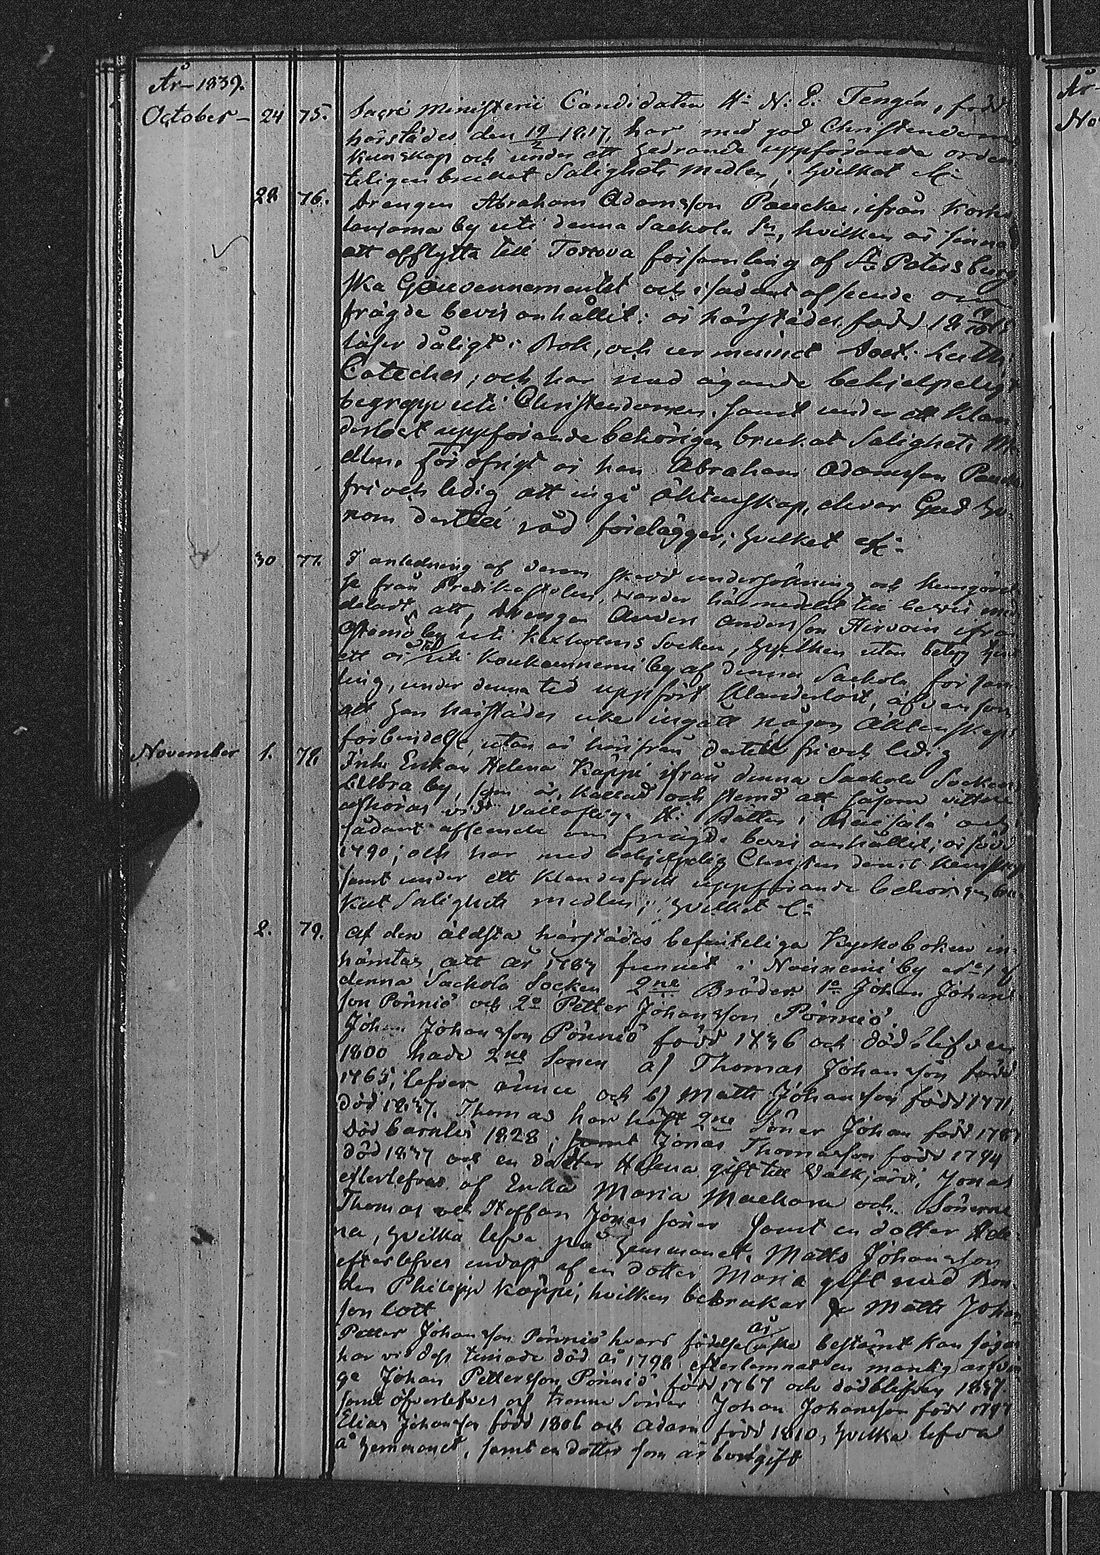 År 1839.
October – 24 75. Sacri Ministerii Candidaten Hr N. E. Tengén, född
härstädes den 19/2 1817, har med god Christendoms
kunskap och under ett hedrande uppförande orden
teligen brukat Salighets medlen, hvilket &c:
28 76. Drengen Abraham Adamsson Paucku, ifrån
by uti denna Sackola Sn, hvilken är sinnad
att afflytta till Toxova församling af St Petersburg
ska Gouvernementet och i sådant afseende om
frågde bevis anhållit: är härstädes född
läser dåligt i Bok, och ur minnet Doct. Luth.
Cateches, och har med ägande behjelpeligt
begrepp uti Christendomen, samt under ett klan
derlöst uppförande behörigen brukat Salighets Me
dlen. För öfrigt är han Abraham Adamsson Paucku
fri och ledig att ingå äktenskap, hvar Gud ho
nom dertill råd förelägger; hvilket &c:
30 77. I anledning af derom skedd undersökning och kungörel
se från Predikostolen, warder härmedelst till bevis med
deladt, att, drengen Anders Andersson Hirvoin ifrån
by uti Kexholms Socken, hvilken utan betyg
ett år uti Koukunniemi by af denna Sackola försam
ling, under denna tid uppfört klanderlöst, äfvensom
att han härstädes icke ingått någon Äktenskaps
förbindelse utan är härifrån dertill fri och ledig
November 1. 78. Enkan Helena Käppi ifrån denna Sackola Socken
by, som är kallad och stemd att såsom vittne
afhöras vid Hr i Räisälä och i
sådant afseende om frågde bevis anhållit; är född
1790; och har med behjelpelig Christendoms kunskap
samt under ett klanderfritt uppförande behörigen bru
kat Salighets medlen; hvilket &c:
2. 79. Af den äldsta härstädes befinteliga Kyrkoboken in
hämtas, att år 1787 funnits i Noisniemi by No 1 af
denna Sackola Socken 2ne Bröder 1o Johan Johans
son Pönniö och 2o Petter Johansson Pönniö.
Johan Johansson Pönniö född 1736 och dödblefven
1800 hade 2ne Söner a) Thomas Johansson född
1765, lefver ännu och b) Matts Johansson född 1771,
död 1837. Thomas har haft 2ne Söner Johan född 1787
död barnlös 1828. samt Jonas Thomasson född 1794
död 1837 och en dotter Helena gift till Valkjärvi. Jonas
efterlefves af Enka Maria och Sönerne
Thomas och Staffan Jonas söner samt en dotter Hele
na, hvilka lefva på hemmanet. Matts Johansson
efterlefves endast af en dotter Maria gift med Bon
den Philipp Käppi, hvilken bebrukar Matts Johans
son lott
Petter Johansson Pönniö hvars födelse år icke bestämt kan sägas
har vid dess timade död år 1798 efterlemnat en manlig arfvin
ge Johan Pettersson Pönniö född 1767 och dödblefven 1837.
samt öfverlefves af trenne Söner Johan Johansson född 1797
Elias Johansson född 1806 och Adam född 1810, hvilka lefva
å hemmanet, samt en dotter som är bortgift
År
No